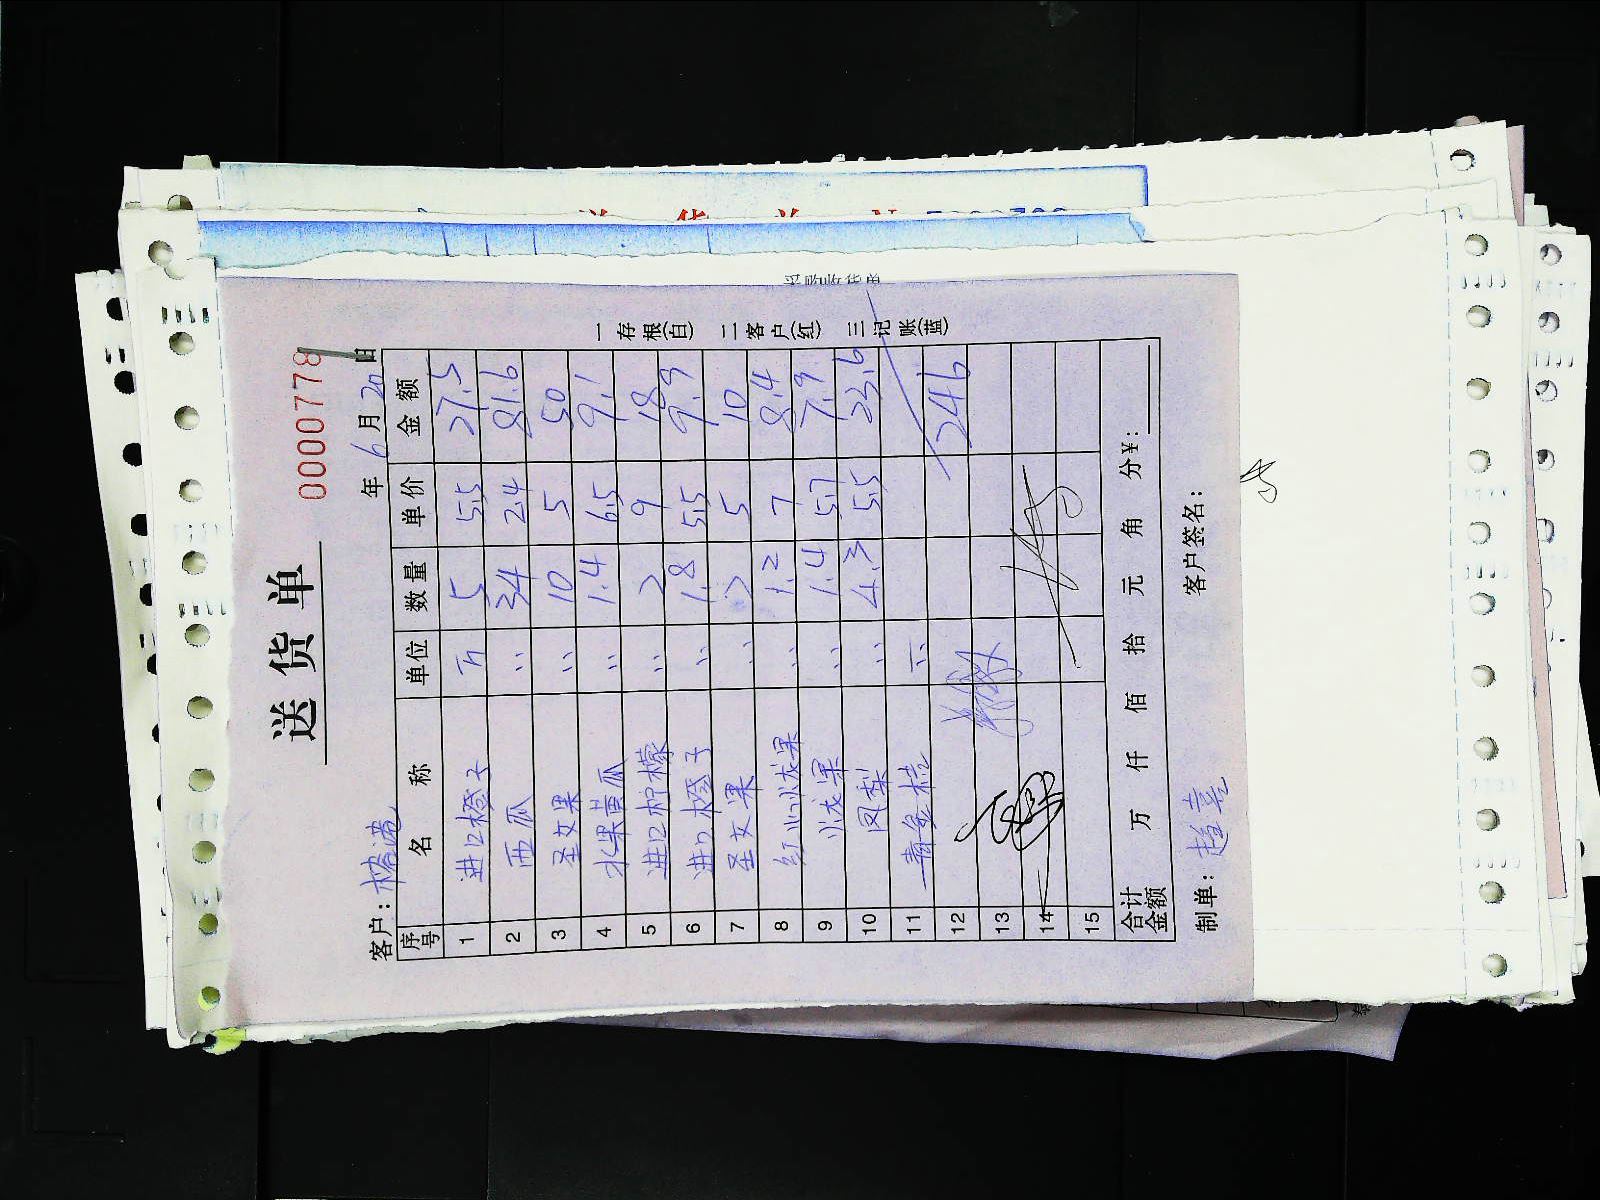 送货单
0000778
客户：橘满 年 6 月 20 日
序号 名称 单位 数量 单价 金额
1 进口橙子 斤 5 5.5 27.5
2 西瓜 〃 34 2.4 81.6
3 圣女果 〃 10 5 50
4 水果黄瓜 〃 1.4 6.5 9.1
5 进口柠檬 〃 2 9 18
6 进口橙子 〃 1.8 5.5 9.9
7 圣女果 〃 2 5 10
8 红心火龙果 〃 1.2 7 8.4
9 火龙果 〃 1.4 5.7 7.9
10 凤梨 〃 4.3 5.5 23.6
11 青金桔 〃
12 246
13
14
15
合计金额 万 仟 佰 拾 元 角 分 ¥：
制单： 客户签名：
一存根(白) 二客户(红) 三记账(蓝)
采购收货单